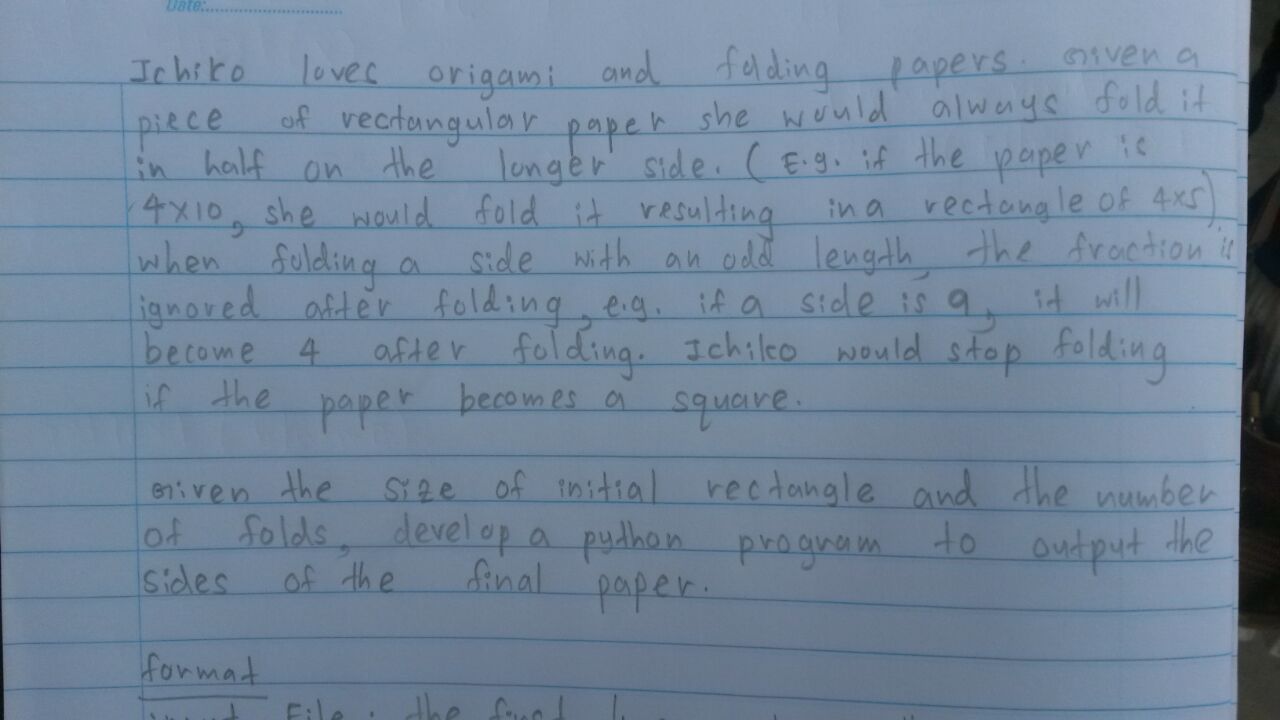 Date:
Ichiko loves origami and folding papers. Given a
piece of rectangular paper she would always fold it
in half on the longer side. (E.g. if the paper is
4x10, she would fold it resulting in a rectangle of 4x5)
when folding a side with an odd length, the fraction is
ignored after folding, e.g. if a side is 9, it will
become 4 after folding. Ichiko would stop folding
if the paper becomes a square.
Given the size of initial rectangle and the number
of folds, develop a python program to output the
sides of the final paper.
format
File: the